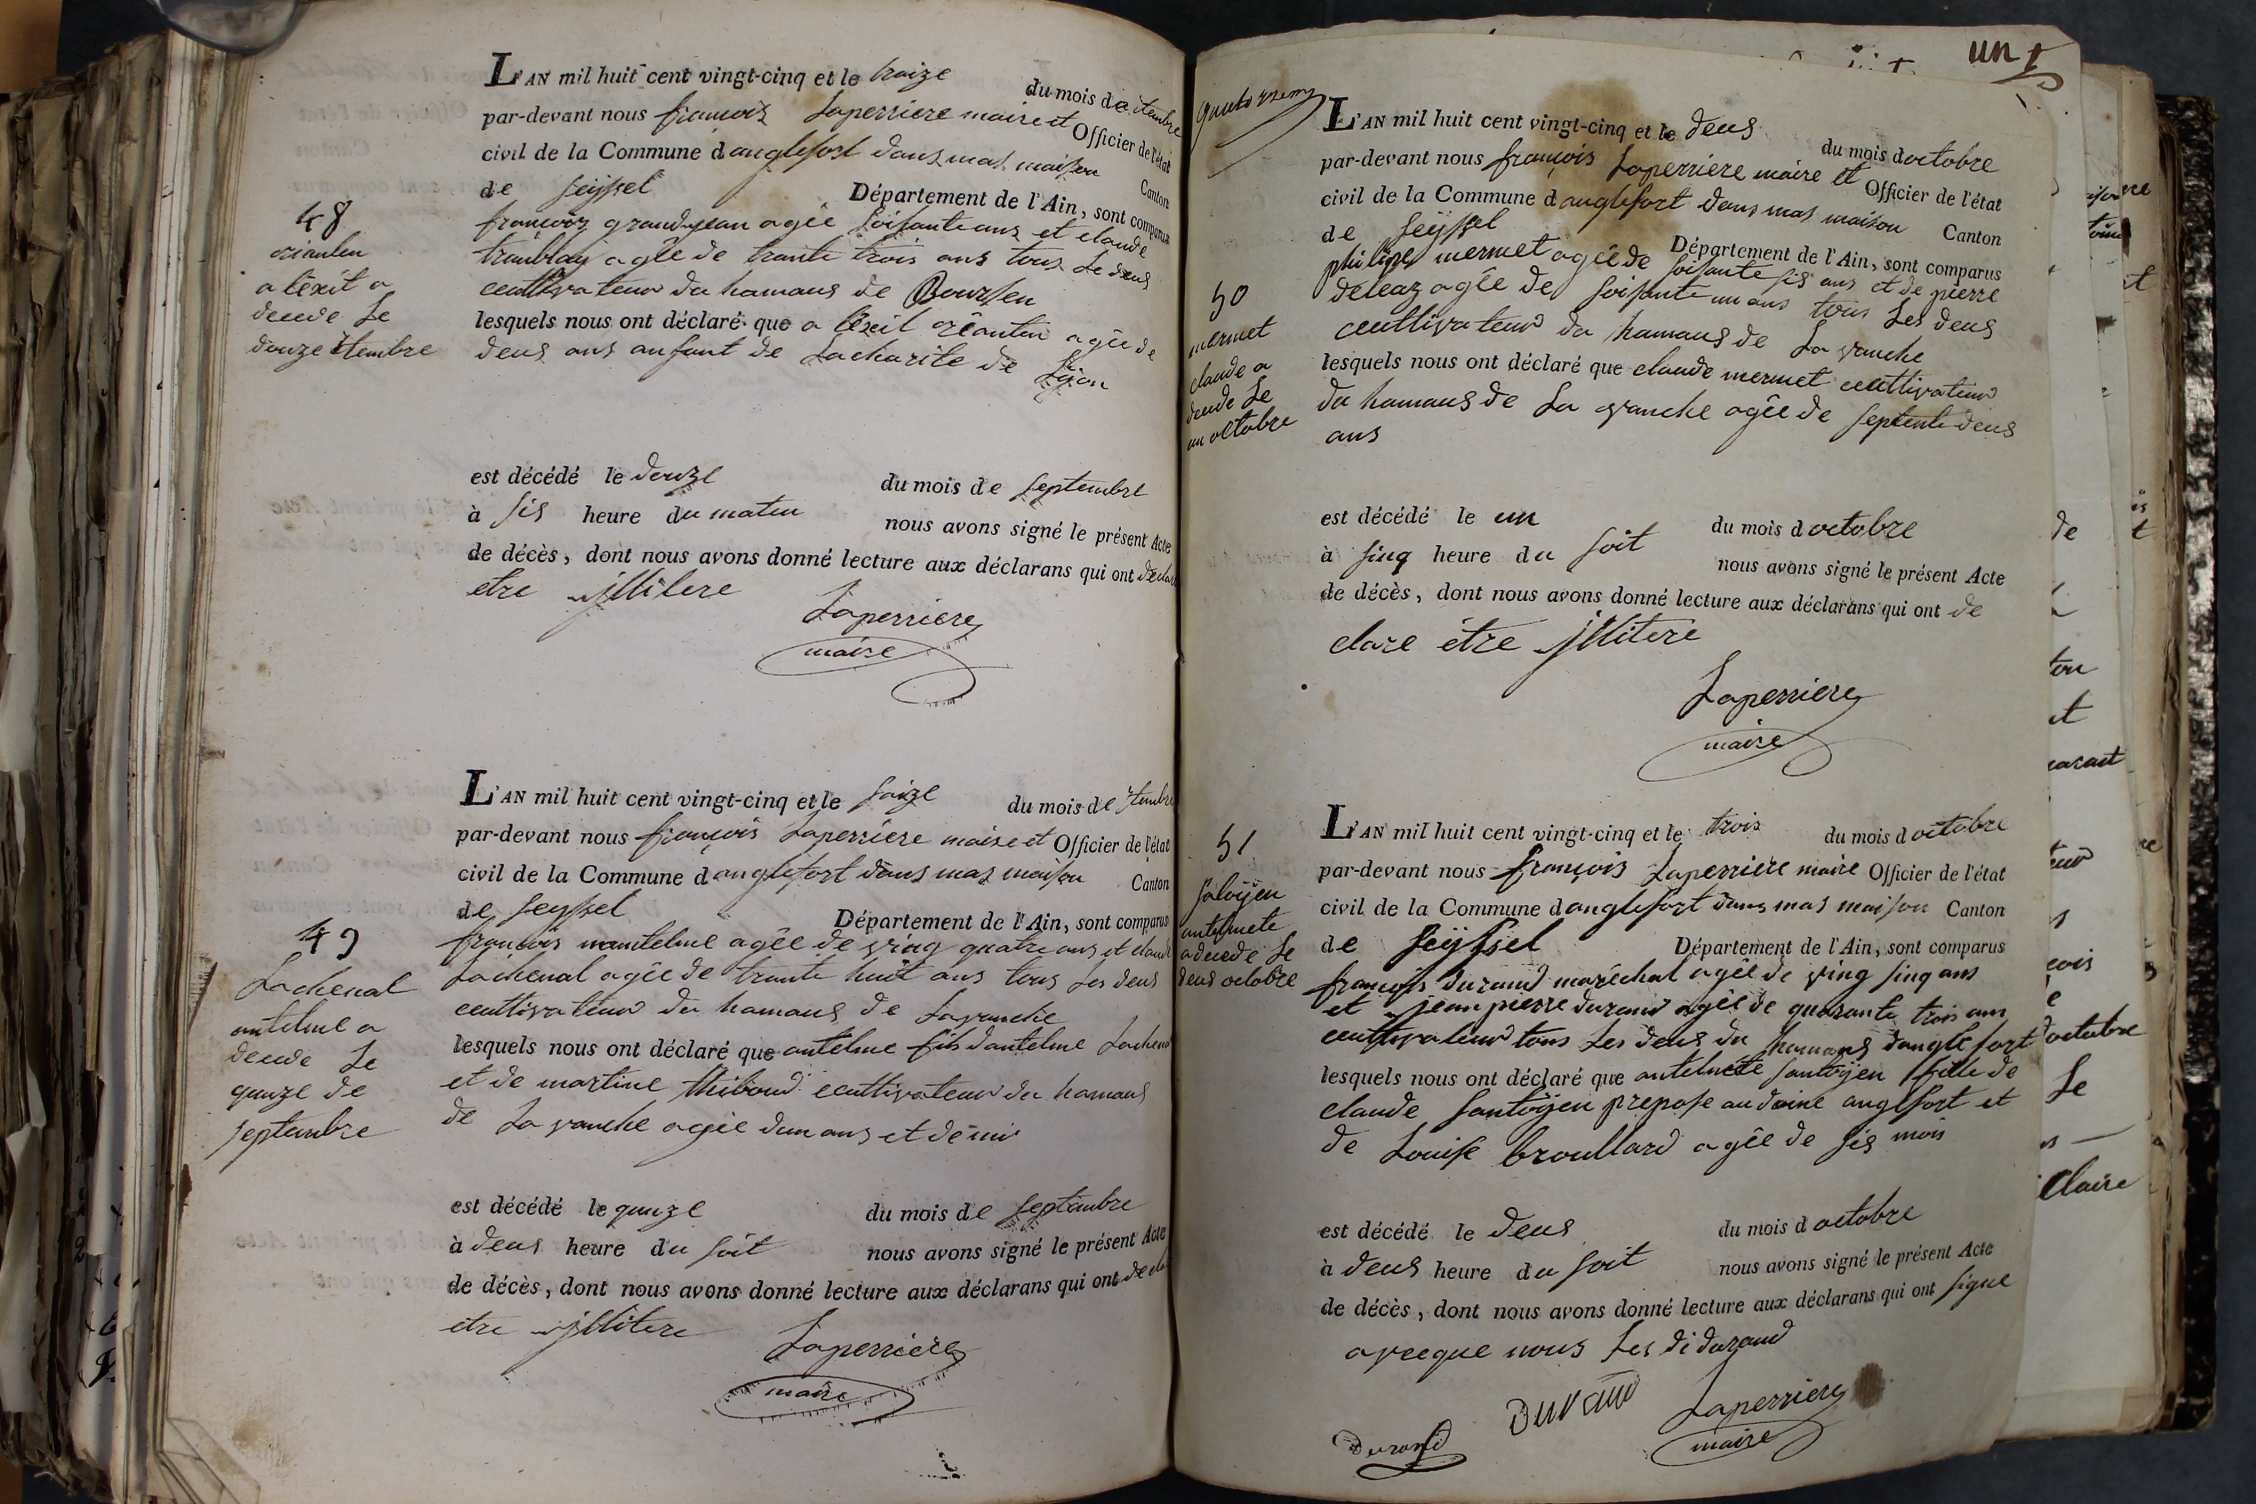 L'AN mil huit cent vingt-cinq et le traize du mois de 7tembre
par-devant nous françois Laperriere maire et Officier de l'état
civil de la Commune d anglefort dans mas maison Canton
de Seÿssel Département de l'Ain, sont comparus
françois grandjean agée soisante ans et claude
tremblay agée de trante trois ans tous Les deus
ceultivateur du hamaus de
lesquels nous ont déclaré que agée de
deus ans anfant de Lacharite de Lÿon
48
a
decede Le
douze 7tembre
est décédé le douze du mois de septembre
à sis heure du matin nous avons signé le présent Acte
de décès, dont nous avons donné lecture aux déclarans qui ont declare
etre jllitere
Laperriere
maire
L'AN mil huit cent vingt-cinq et le saize du mois de 7tembre
par-devant nous françois Laperriere maire et Officier de l'état
civil de la Commune d anglefort dans mas maison Canton
de Seyssel Département de l'Ain, sont comparus
françois mantelme agée de ving quatre ans et claude
Lachenal agée de trante huit ans tous Les deus
ceultivateur du hamaus de Lavanche
lesquels nous ont déclaré que antelme fils dantelme Lachenal
et de martine thiboud ceultivateur du hamaus
de La vanche agée dun ans et demi
49
Lachenal
antelme a
decede Le
quinze de
septambre
est décédé le quinze du mois de septambre
à deus heure du soit nous avons signé le présent Acte
de décès, dont nous avons donné lecture aux déclarans qui ont decla
etre jllitere
Laperriere
maire
un
L'AN mil huit cent vingt-cinq et le deus du mois d octobre
par-devant nous françois Laperriere maire et Officier de l'état
civil de la Commune d anglefort dans mas maison Canton
de Seÿssel Département de l'Ain, sont comparus
philipe mermet agée de soisante sis ans et de pierre
deleaz agée de soisante un ans tous Les deus
ceultivateur du hamaus de La vanche
lesquels nous ont déclaré que claude mermet ceultivateur
du hamaus de La vanche agée de septente deus
ans
50
mermet
claude a
decede Le
un octobre
est décédé le un du mois d octobre
à sinq heure du soit nous avons signé le présent Acte
de décès, dont nous avons donné lecture aux déclarans qui ont de
clare étre jllitere
Laperriere
maire
L'AN mil huit cent vingt-cinq et le trois du mois d octobre
par-devant nous françois Laperriere maire Officier de l'état
civil de la Commune d anglefort dans mas maison Canton
de Seÿssel Département de l'Ain, sont comparus
françois durand maréchal agée de ving sinq ans
et jean pierre durand agée de quarante trois ans
ceultivateur tous Les deus du hamaus danglefort
lesquels nous ont déclaré que antelmete santoÿen fille de
claude santoÿen prepose au doine anglfort et
de Louise broullard agée de sis mois
51
antelmete
a decede Le
deus octobre
est décédé le deus du mois d octobre
à deus heure du soit nous avons signé le présent Acte
de décès, dont nous avons donné lecture aux déclarans qui ont signe
avecque nous Les di durand
Durand
Durand
Laperriere
maire
octobre
Le
Claire